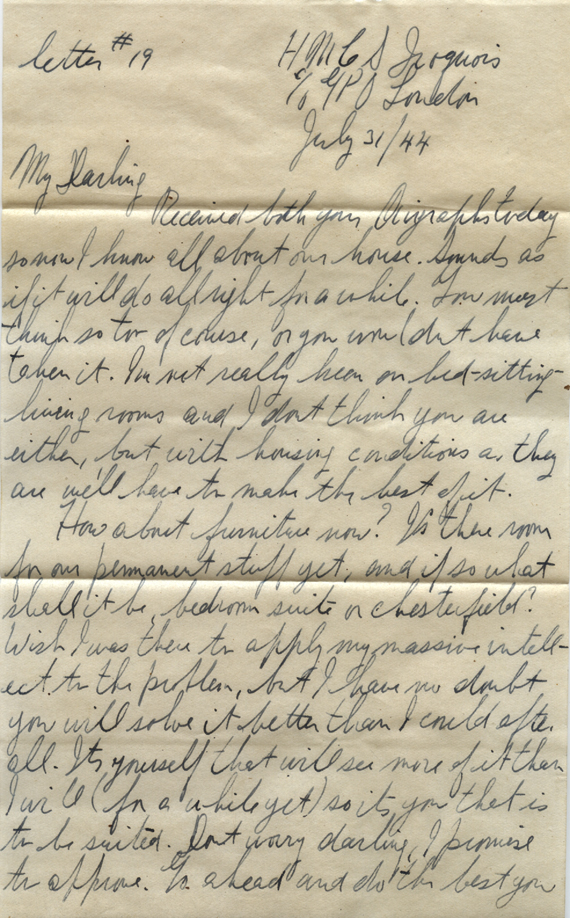 letter #19
HMCS Iroquois
c/o GPO London
July 31/44
My Darling
Received both your Airgraphs today
so now I know all about our house. Sounds as
if it will do all right for a while. You must
think so too of course, or you wouldnt have
taken it. I'm not really keen on bed-sitting-
living rooms and I dont think you are
either, but with housing conditions as they
are we'll have to make the best of it.
How about furniture now? Is there room
for our permanent stuff yet, and if so what
shall it be, bedroom suite or chesterfield?
Wish I was there to apply my massive intell-
ect to the problem, but I have no doubt
you will solve it better than I could after
all. Its yourself that will see more of it than
I will (for a while yet) so its you that is
to be suited. Dont worry darling, I promise
to approve. Go ahead and do the best you